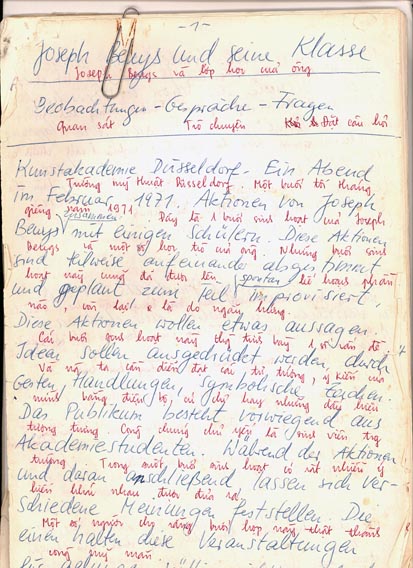 - 1 -
Joseph Beuys und seine Klasse
Joseph Beuys và lớp học của ông
Beobachtungen - Gespräche - Fragen
Quan sát Trò chuyện Đặt câu hỏi
Kunstakademie Düsseldorf. Ein Abend
Trường mỹ thuật Düsseldorf. Một buổi tối tháng
im Februar 1971. Aktionen von Joseph
giêng năm 1971. Đây là 1 buổi sinh hoạt mà Joseph
zusammen
Beuys mit einigen Schülern. Diese Aktionen
Beuys và một số học trò của ông. Những buổi sinh
sind teilweise aufeinander abgestimmt
hoạt này cũng đã được
spontan
und geplant zum Teil improvisiert.
nào, và là do ngẫu hứng.
Diese Aktionen wollen etwas aussagen.
Các buổi sinh hoạt này trình bày 1 vấn đề.
Ideen sollen ausgedrückt werden, durch
Và người ta cần diễn đạt cái tư tưởng, ý kiến của
Gesten, Handlungen, symbolische Zeichen.
mình bằng điệu bộ, cử chỉ hay những dấu hiệu
Das Publikum besteht vorwiegend aus
tượng trưng. Công chúng chủ yếu là sinh viên
Akademiestudenten. Während der Aktionen
trường. Trong một buổi sinh hoạt có rất nhiều ý
und daran anschließend lassen sich ver-
kiến khác nhau được đưa ra.
schiedene Meinungen feststellen. Die
Một số người cho rằng buổi họp này thật thành
einen halten diese Veranstaltungen
công mỹ mãn